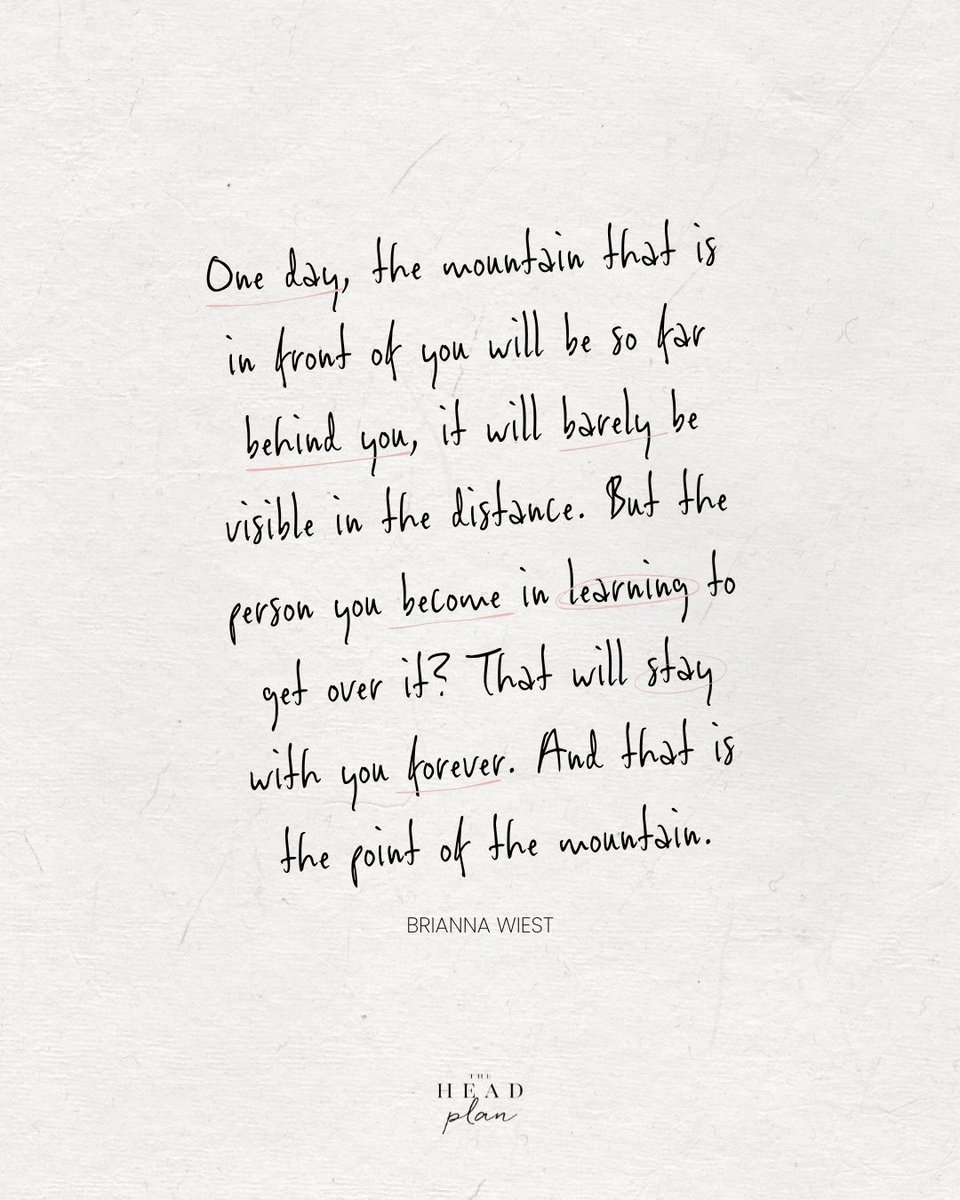 One day, the mountain that is
in front of you will be so far
behind you, it will barely be
visible in the distance. But the
person you become in learning to
get over it? That will stay
with you forever. And that is
the point of the mountain.
BRIANNA WIEST
THE
HEAD
plan